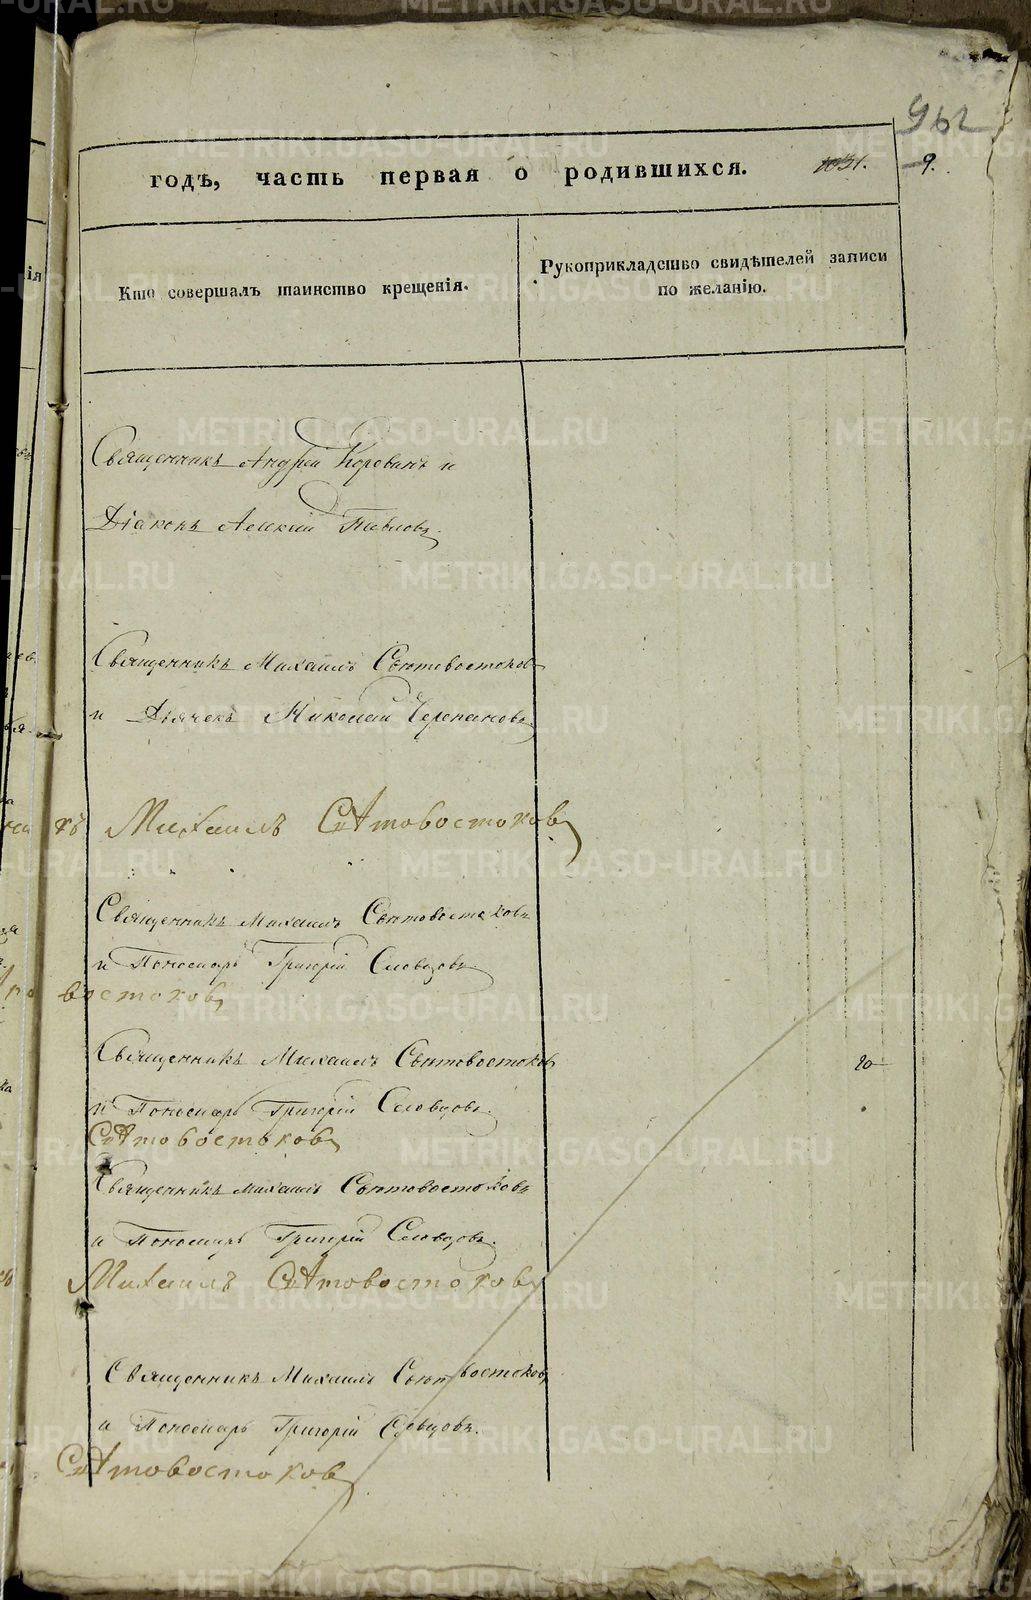 962
годѣ, часть первая о родившихся. 9.
Кто совершалъ таинство крещенія.
Рукоприкладство свидѣтелей записи
по желанію.
Священникъ Андрей Коровинъ и
Діаконъ Алексій Павловъ.
Священникъ Михаилъ Свѣтовостоковъ
и Дьячекъ Николай Черепановъ
Михаилъ Свѣтовостоковъ
Священникъ Михаилъ Свѣтовостоковъ
и Пономарь Григорій Словцовъ
востоковъ
Священникъ Михаилъ Свѣтовостоковъ
20
и Пономарь Григорій Словцовъ.
Свѣтовостоковъ
Священникъ Михаилъ Свѣтовостоковъ
и Пономарь Григорій Словцовъ.
Михаилъ Свѣтовостоковъ
Священникъ Михаилъ Свѣтовостоковъ
и Пономарь Григорій Словцовъ.
Свѣтовостоковъ
METRIKI.GASO-URAL.RU